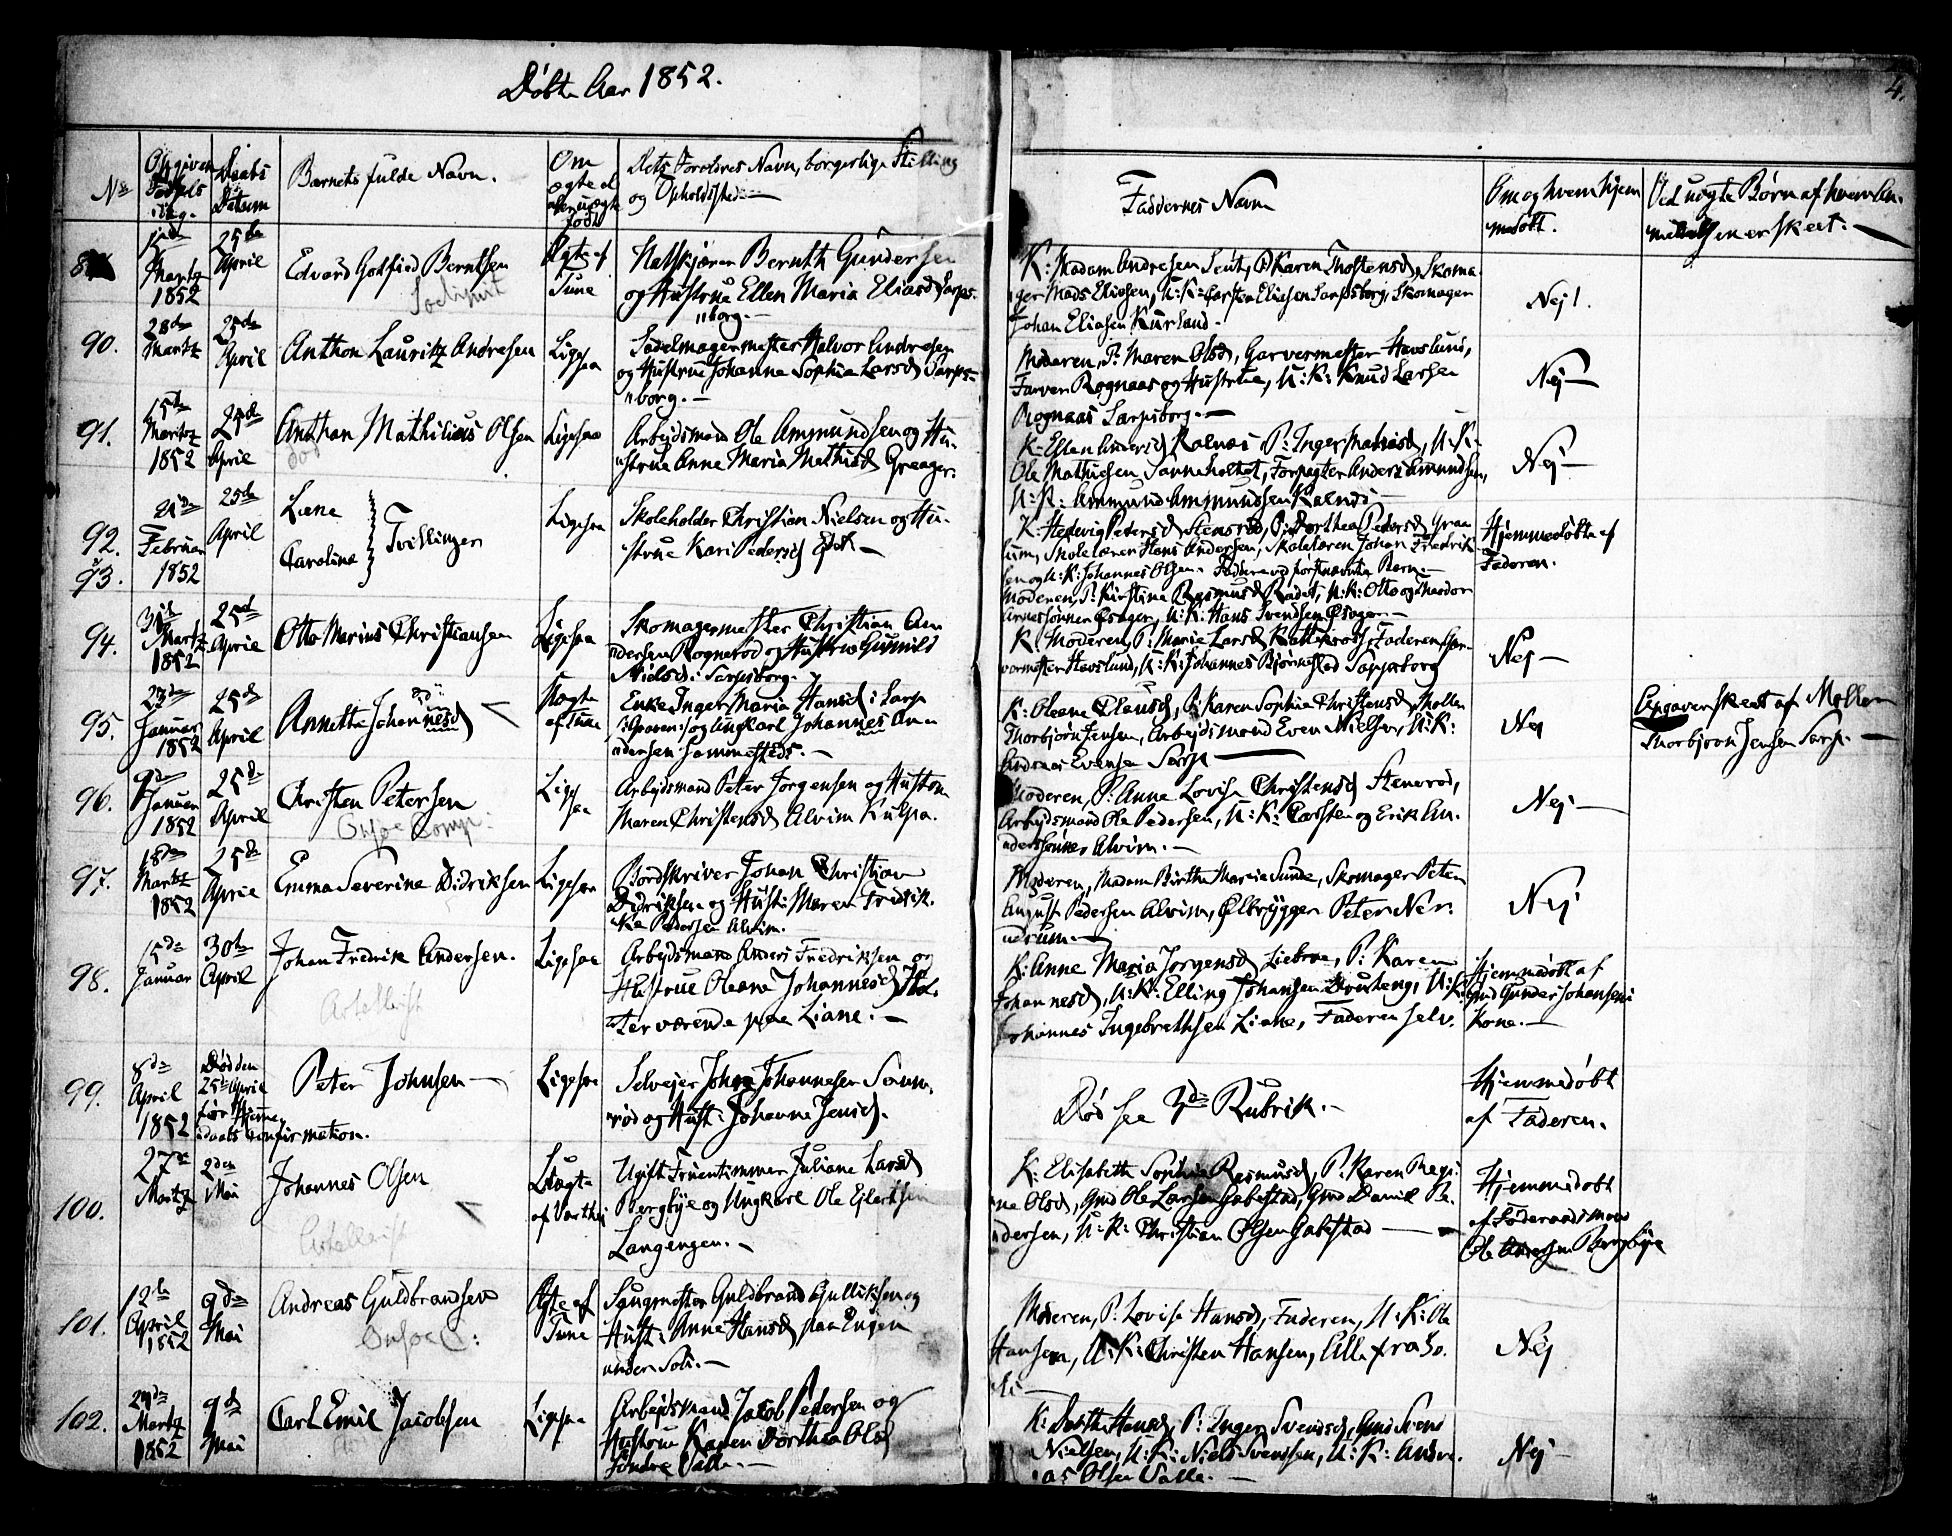 Døbte Aar 1852.
4.
No
Opgiven Fødsels dag.
Daabs Datum
Barnets fulde Navn.
Om ægte el. uægte født
Dets Forældres Navn, borgerlige Stilling
og Opholdssted. —
Faddernes Navn
Om og hvem hjem
medøbt.
Ved uægte Børn af hvem An
meldelsen er skeet. —
Martz
1852
25de
April
Edvard Gotfred Berntsen
Ægte af
Tune
Bernth Gundersen
og Hustrue Ellen Maria Eliasd Sarps-
borg. —
K: Madam Andresen P: Karen Thostensd, Skoma
ger Mads Eliesen, U: K: Carsten Eliesen Sarpsborg, Skomager
Johan Eliasen Kurland.
Nej!
90.
28de
Martz
25de
April
Anthon Lauritz Andresen
Ligesaa
Sadelmagermester Halvor Andresen
og Hustrue Johanne Sophia Larsd Sarps-
borg. —
Moderen, P: Maren Olsd, Garvermester Havslund,
Farver Rognaas og Hustrue, U: K: Knud Larsen
Rognaas Sarpsborg. —
Nej —
91.
15de
Martz
1852
25de
April
Anthon Mathilius Olsen
død
Ligesaa
Arbejdsmand Ole Ammundsen og Hu-
strue Anne Maria Mathisd Greager.
K: Ellen Andersd Kalnæs P: Inger Mathisd, U: K:
Ole Mathiesen Sanneholtet, Forpagter Anders Amundsen,
U: K: Ammund Ammundsen Kalnæs —
Nej —
92.
93.
21de
Februar
1852
25de
April
Liene
Caroline
Tvillinger
Ligesaa
Skoleholder Christian Nielsen og Hu-
strue Kari Pedersd —
K: Hedevig Petersd Stensrød, P: Dorthea Pedersd Graa
lum, Skolelærer Hans Andersen, Skolelærer Johan Fredrik
sen og U: K: Johannes Olsen. Faddere ved førstnævnte Barn. —
Moderen, P: Kirstine Rasmusd Rødet, U: K: Otto og Haldor
Arnesønner Opsager, U: K: Hans Svendsen Opsager —
Hjemmedøbte af
Faderen.
94.
31te
Martz
1852
25de
April
Otto Marius Christiansen
Ligesaa
Skomagermester Christian An
dersen Rognerød og Hustrue Gunild
Nielsd: Sarpsborg.
K: Moderen, P: Marie Larsd Kattesrød, Faderen, Gar-
vermester Havslund, U: K: Johannes Bjørnestad Sarpsborg
Nej —
95.
Januar
1852
25de
April
Annette Johannesd
Uægte
af Tune
Enke Inger Maria Hansd i Sarp
og Ungkarl Johannes An-
dersen —
K: Oleane Clausd, P: Karen Sophia Christensd, Møller
Thorbjørn Jensen, Arbejdsmand Even Nielsen, U: K:
Andreas Evensen Sarp —
Nej
Opgaven skeet af Møller
Thorbjørn Jensen Sarp. —
96.
9de
Januar
1852
25de
April
Christen Petersen
Onsøe Comp:
Ligesaa
Arbejdsmand Peter Jorgensen og Hustrue
Maren Christensd Alvim
Moderen, P: Anne Lovise Christensd Stensrød,
Arbejdsmand Ole Pedersen, U: K: Carsten og Erik An-
derssønner Alvim. —
Nej —
97.
18de
Martz
1852
25de
April
Emma Severine Didriksen
Ligesaa
Bordskriver Johan Christian
Didriksen og Hust: Maren Fredrik-
ke Pedersen Alvim.
Moderen, Madam Birthe Maria Sunde, Skomager Peter
August Pedersen Alvim, Ølbrygger Peter Ner-
durum. —
Nej
98.
15de
Januar
30te
April
Johan Fredrik Andersen.
Artellerist
Ligesaa
Arbejdsmand Anders Fredriksen og
Hustrue Oleane Johannesd
værende paa Liane. —
K: Anne Maria Jorgensd Liebroe, P: Karen
Johannesd, U: K: Elling Johansen U: K:
Johannes Ingebrethsen Liane, Faderen selv.
Hjemmedøbt af
Gmd Gunder Johansens
Kone. —
99.
8de
April
1852
Død den
25de April
før Hjemme
daabs Confirmation.
Peter Johnsen —
Ligesaa
Selvejer John Johannesen
rød og Hust: Johanne Jensd.
Død see 3de Rubrik. —
Hjemmedøbt
af Faderen.
100.
27de
Martz
2den
Mai
Johannes Olsen
Artellerist
Uægte
af Varthej
Ugift Fruentimmer Juliane Larsd
Bergbye og Ungkarl Ole Ejlertsen
Langengen. —
K: Elisabeth Sophia Rasmusd, P: Karen Regi-
ne Olsd, Gmd Ole Larsen Gabestad, Gmd Daniel Pe-
dersen, U: K: Christian Olsen Gabestad —
Hjemmedøbt
af Føderaadsmand
Ole Bergbye
101.
12te
April
1852
9de
Mai
Andreas Guldbrandsen
Onsøe C:
Ægte af
Tune
Saugmester Guldbrand Gulliksen og
Hust: Anne Hansd paa Engen
under Soli. —
Moderen, P: Lovise Hansd, Faderen, U: K: Ole
Hansen, U: K: Christen Hansen, Alle fra So-
li —
Nej
102.
29de
Martz
1852
9de
Mai
Carl Emil Jacobsen
Ligesaa
Arbejdsmand Jacob Pedersen og
Hustrue Karen Dorthea Olsd
Søndre Valle. —
K: Dorthe Hansd, P: Inger Svendsd, Gmd Svend
Nielsen, U: K: Niels Svendsen, U: K: Andre-
as Olsen Valle. —
Nej —